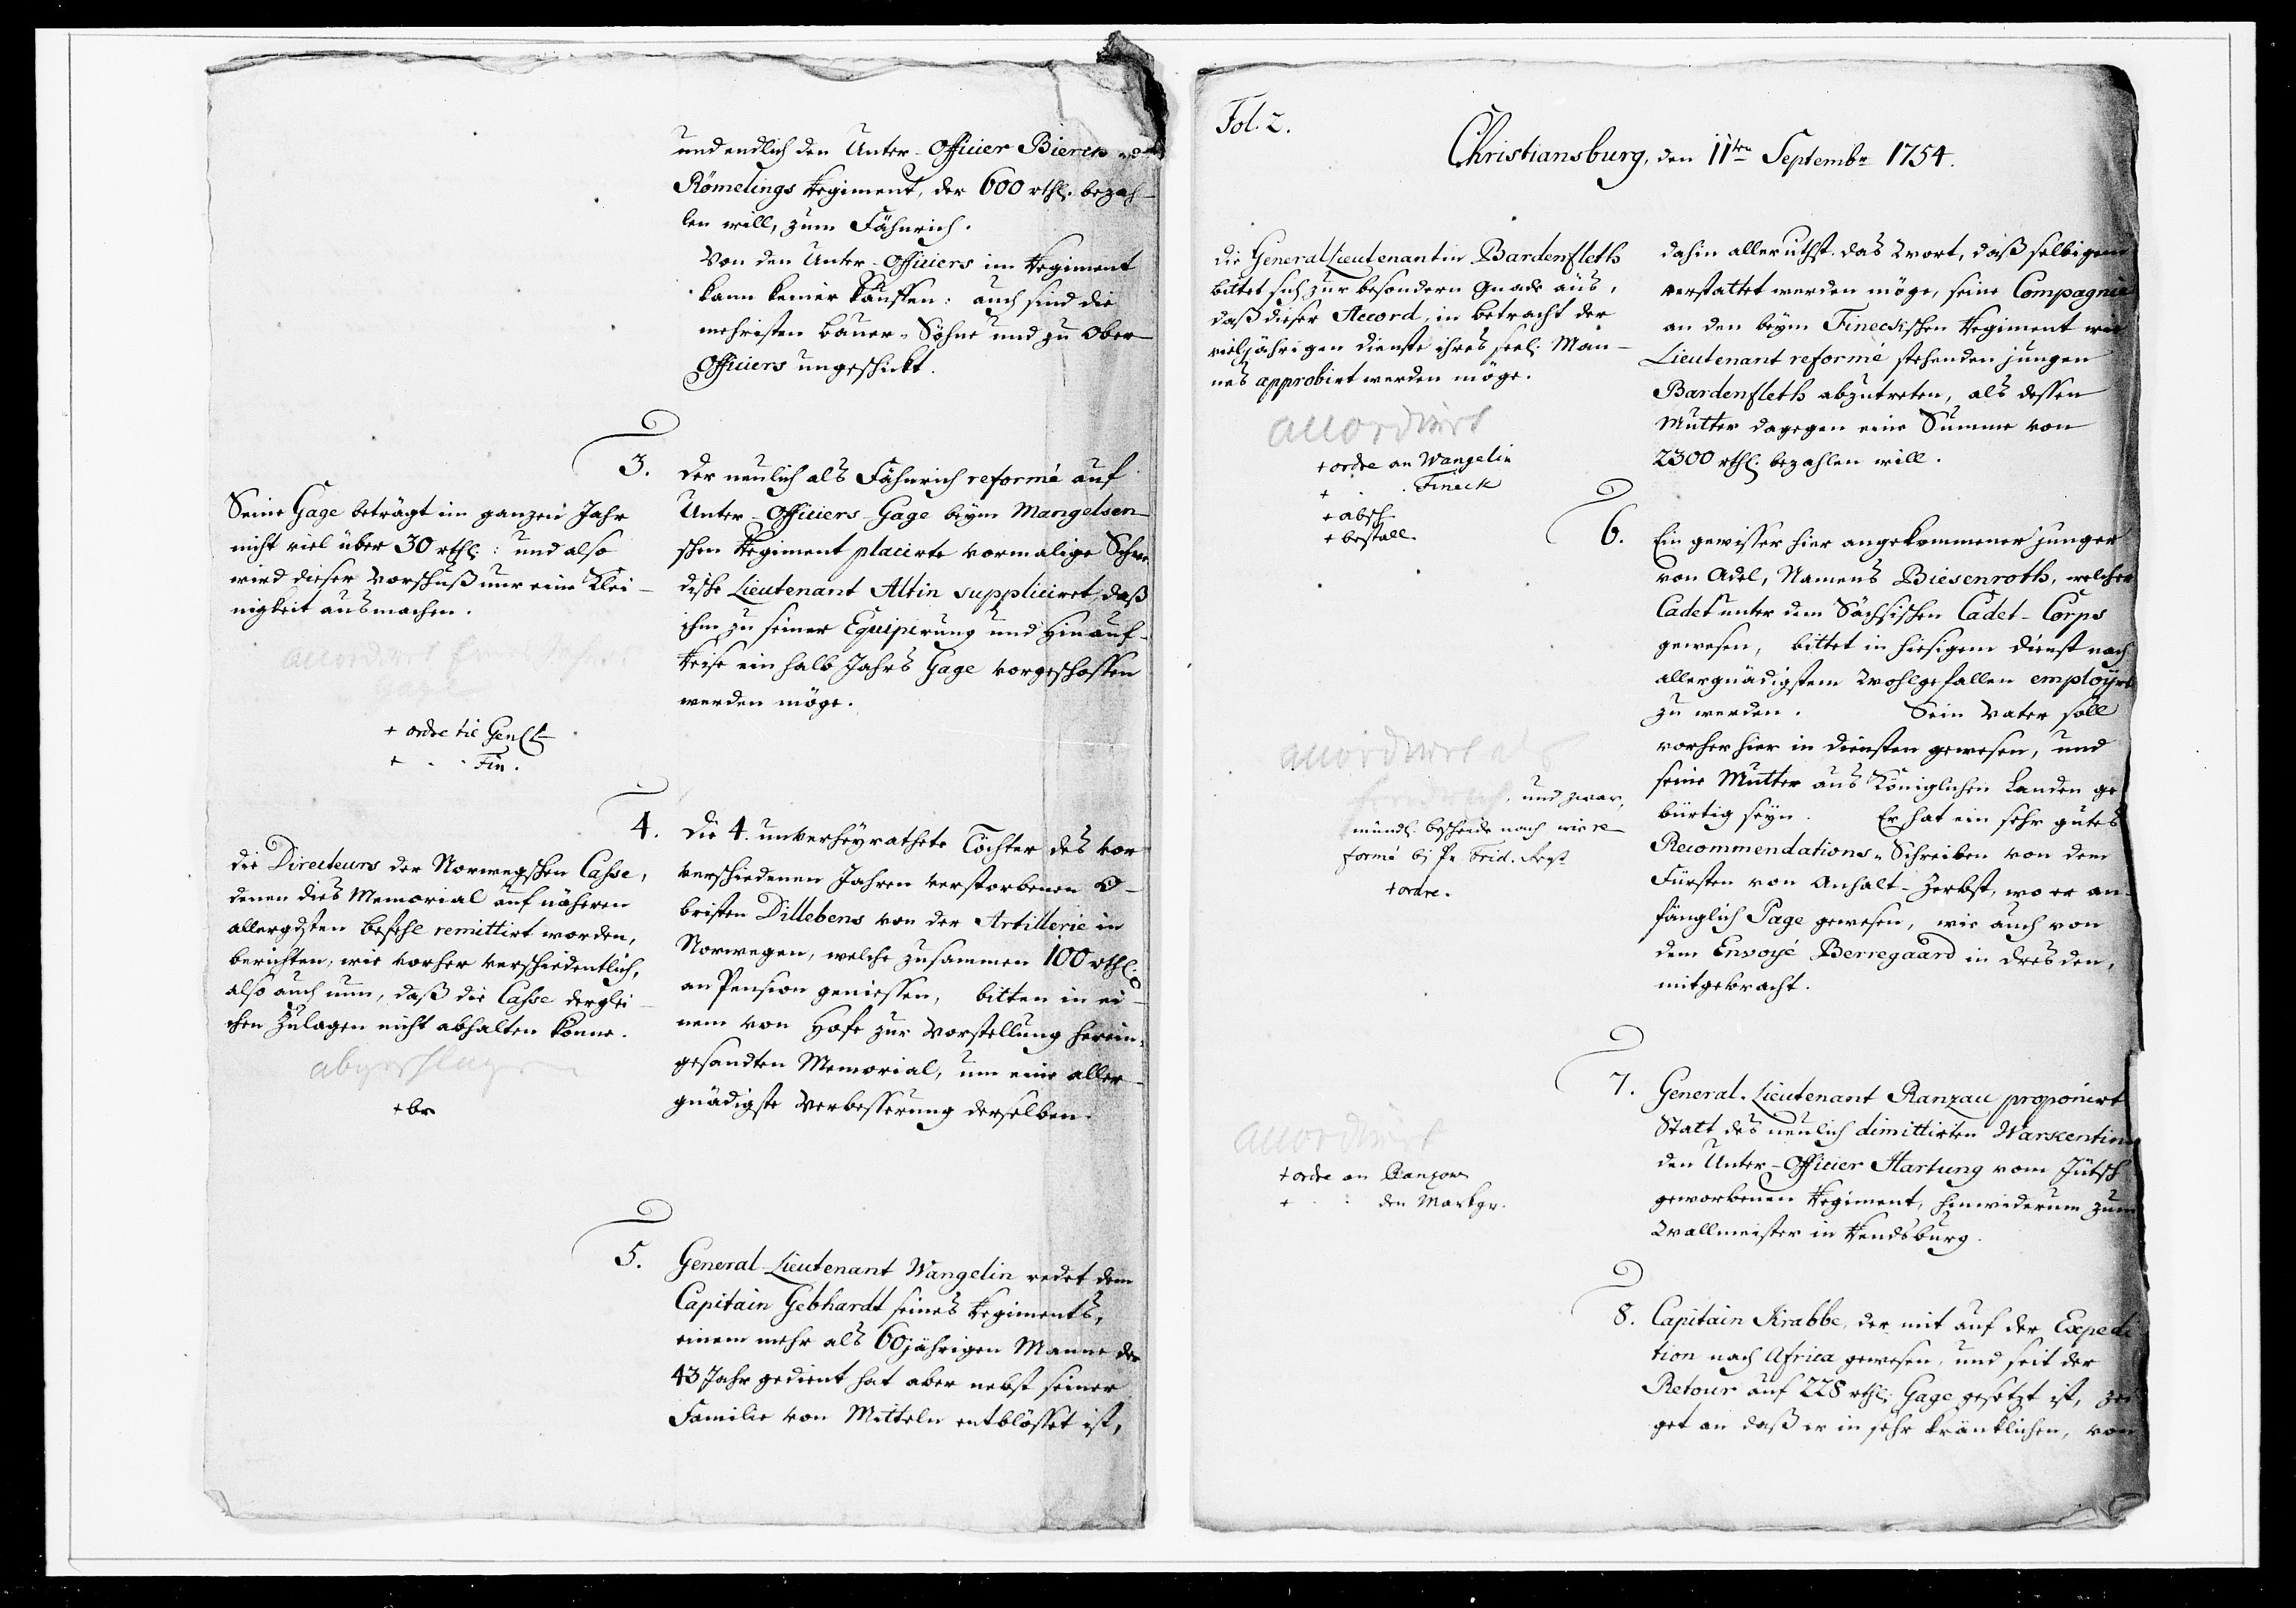 und endlich den Unter-Officier Bierck
Römelings Regiment, der 600 rthl. bezah-
len will, zum Fähnrich.
Von den Unter-Officiers im Regiment
kann keiner kauffen: auch sind die
mehristen Bauer-Söhne und zu Ober
Officiers ungeschickt.
3. Der neulich als Fähnrich reformé auf
Unter-Officiers-Gage beym Mangelsen-
schen Regiment placirte vormalige Schwe
dische Lieutenant Altin suppliciret, daß
ihm zu seiner Equipirung und Hinauf-
Reise ein halb Jahrs Gage vorgeschossen
werden möge.
Seine Gage beträgt im ganzen Jahr
nicht viel über 30 rthl.: und also
wird dieser Vorschuß nur eine Klei-
nigkeit ausmachen.
accordirt Jahres
gage
+ ordre til Genlt
+ - - Fin.
4. Die 4. unverheyrathete Töchter des vor
verschiedenen Jahren verstorbenen O-
bristen Dillebens von der Artillerie in
Norwegen, welche zusammen 100 rthl.
an Pension geniessen, bitten in ei-
nem von Hofe zur Vorstellung herein-
gesandten Memorial, um eine aller-
gnädigste Verbesserung derselben.
die Directeurs der Norwegschen Casse,
denen dies Memorial auf näheren
allergdsten Befehl remittirt worden,
berichten, wie vorher verschiedentlich,
also auch nun, daß die Casse derglei-
chen Zulagen nicht abhalten könne.
abgeschlagen
+ br
5. General-Lieutenant Wangelin redet dem
Capitain Gebhardt seines Regiments,
einem mehr als 60jährigen Manne der
43 Jahr gedient hat aber nebst seiner
Familie von Mitteln entblösset ist,
Fol. 2.
Christiansburg, den 11ten Septembr 1754.
dahin alleruthst. das Wort, daß selbigem
verstattet werden möge, seine Compagnie
an den beym Fineckschen Regiment wie
Lieutenant reformé stehenden jungen
Bardenfleth abzutreten, als dessen
Mutter dagegen eine Summe von
2300 rthl. bezahlen will.
die GeneralLieutenantin Bardenfleth
bittet sich zur besondern Gnade aus,
daß dieser Accord, in betracht der
vieljährigen Dienste ihres seel. Man-
nes approbirt werden möge.
accordiret
+ ordre an Wangelin
+ - - Fineck
+ absch
+ bestall.
6. Ein gewisser hier angekommener junger
von Adel, Namens Biesenroth, welcher
Cadet unter dem Sächsischen Cadet-Corps
gewesen, bittet in hiesigem Dienst nach
allergnädigstem Wohlgefallen employrt
zu werden. Sein Vater soll
vorher hier in Diensten gewesen, und
seine Mutter aus Königlichen Landen ge
bürtig seyn. Er hat ein sehr gutes
Recommendations-Schreiben von dem
Fürsten von Anhalt-Zerbst, wo er an-
fänglich Page gewesen, wie auch von
dem Envoyé Berregaard in Dresden,
mitgebracht.
accordiret als
fendrich, und zwar,
mündl. bescheide nach wie re-
formé bj Pr Frid. Regt
+ ordre.
7. General-Lieutenant Ranzau proponirt
Statt des neulich dimittirten Warscentin
den Unter-Officier Hartung vom Jütsch
geworbenen Regiment, hinwiederum zum
Wallmeister in Rendsburg.
accordiret
+ ordre an Ranzow
+ - - den Markgr.
8. Capitain Krabbe, der mit auf der Expedi
tion nach Africa gewesen, und seit der
Retour auf 228 rthl. Gage gesetzt ist, zei
get an daß er in sehr kränklichen, von